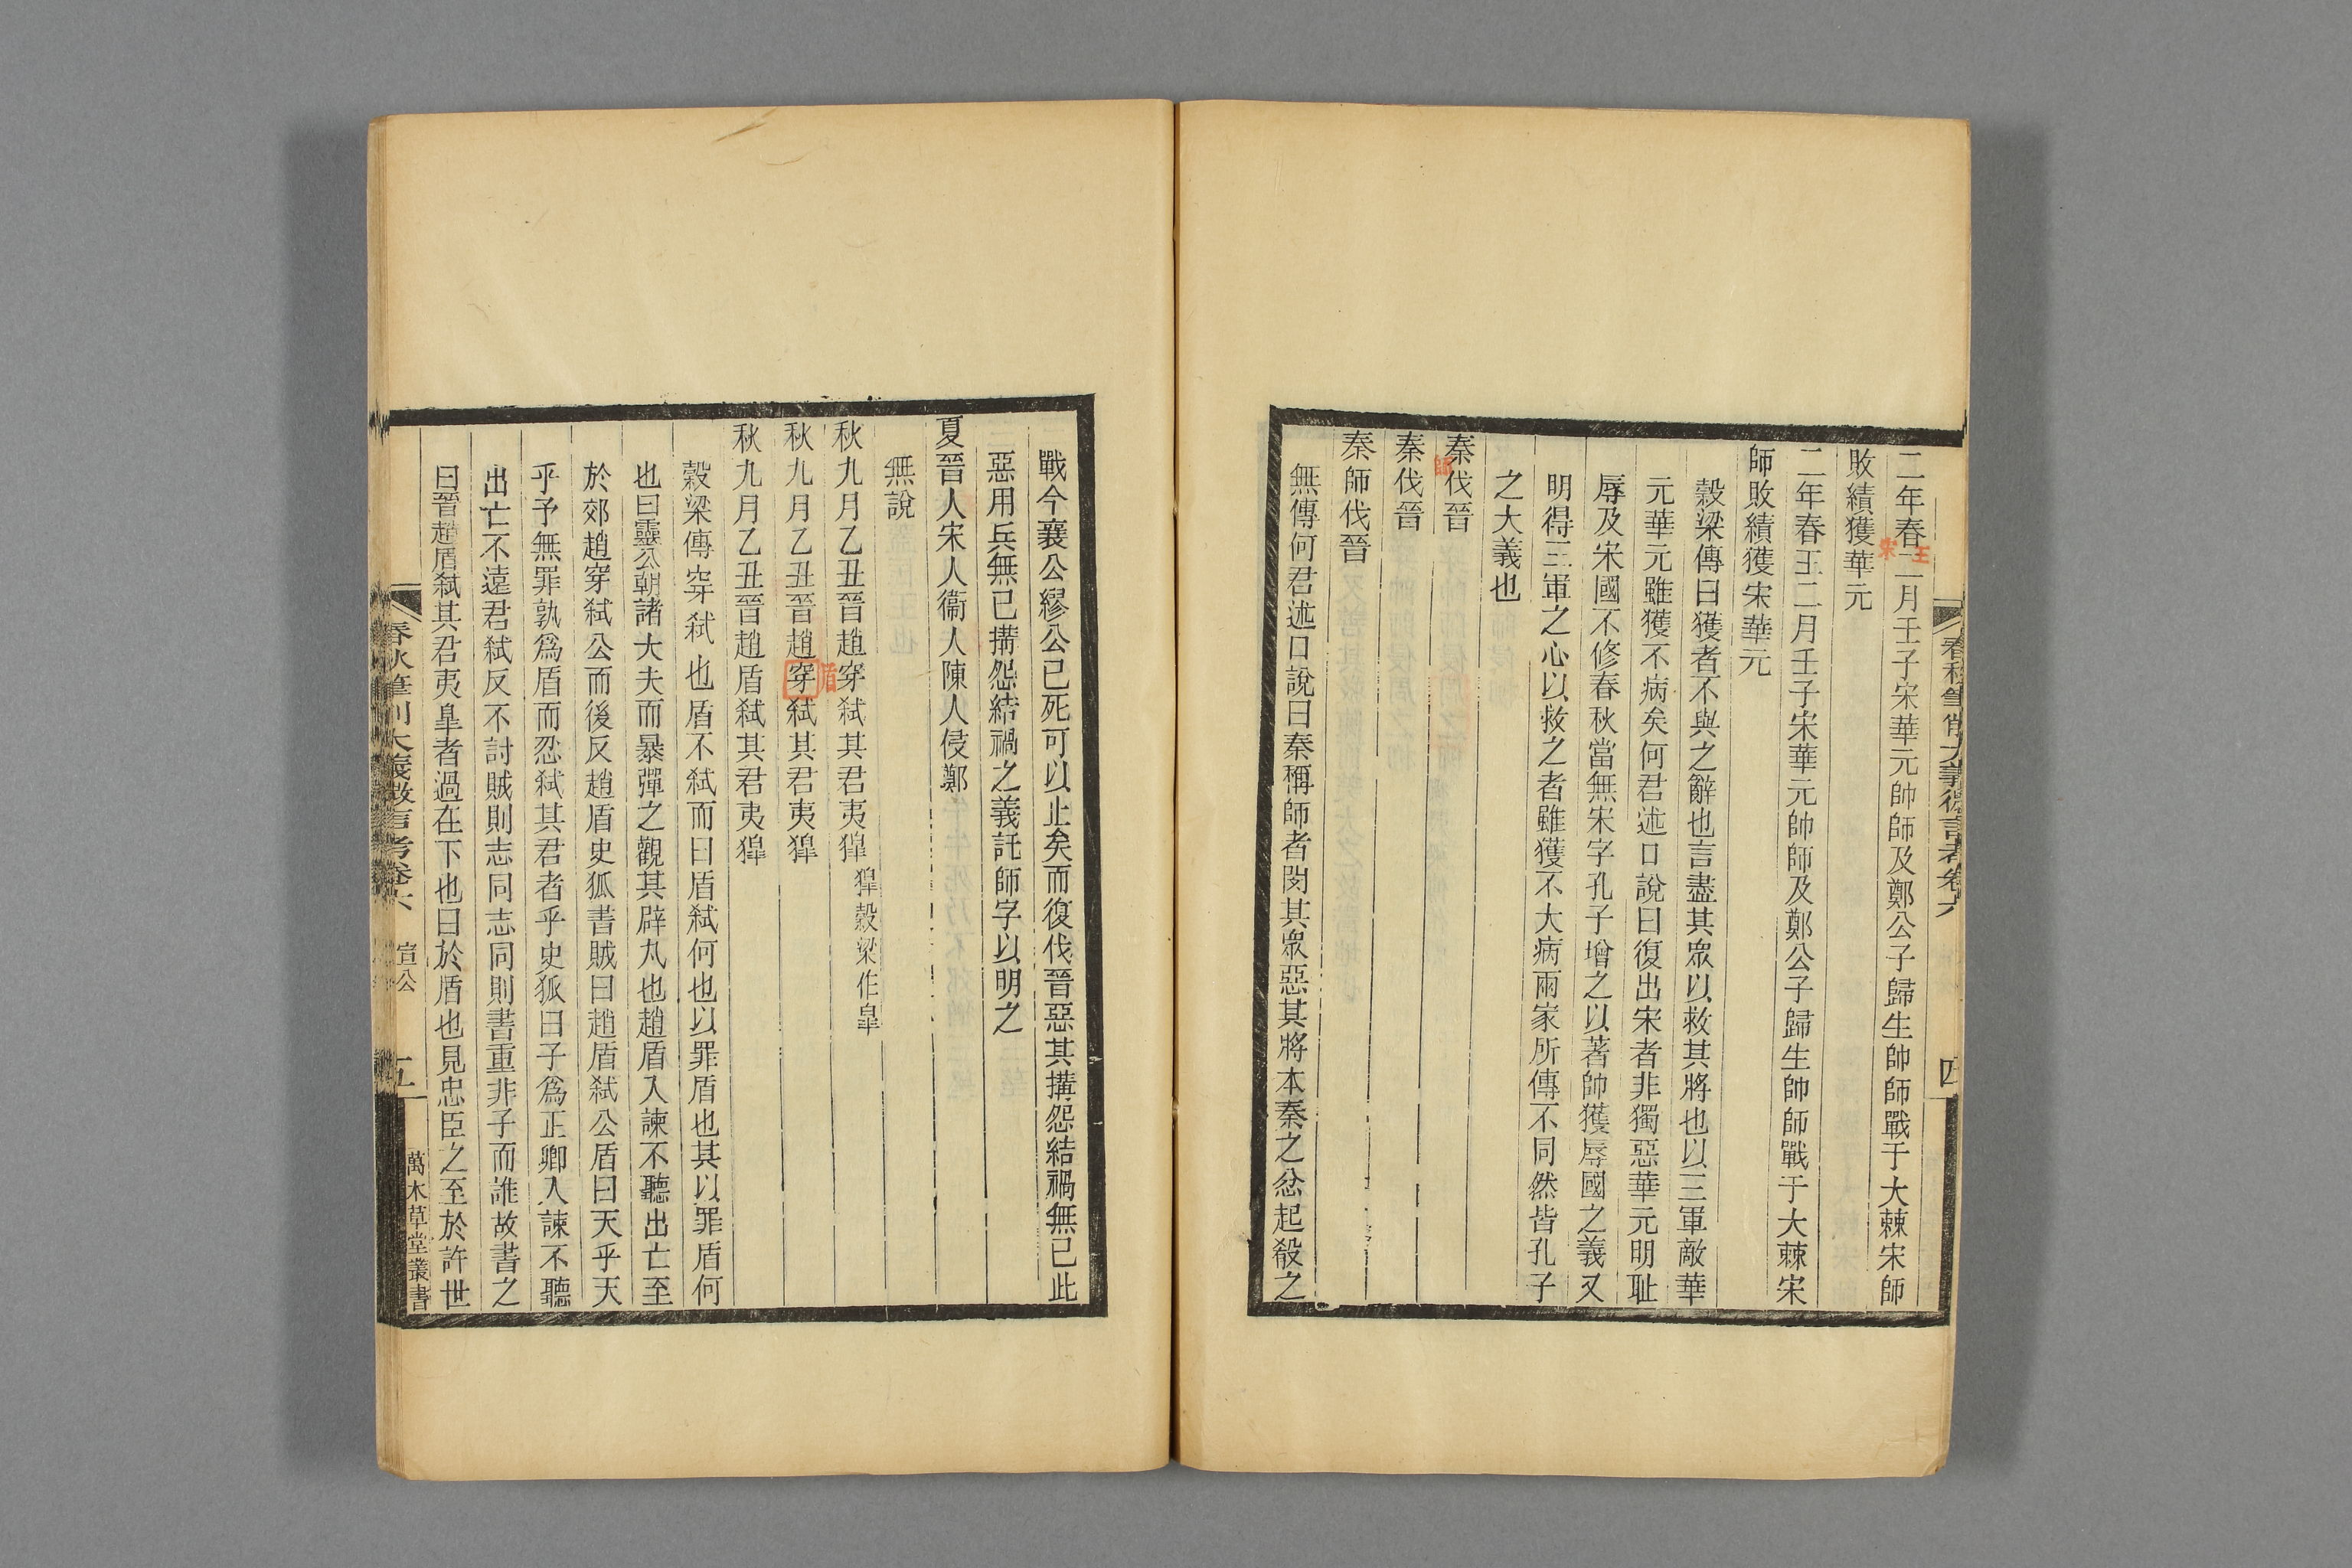 春秋筆削大義微言考卷六
四
二年春二月壬子宋華元帥師及鄭公子歸生帥師戰于大棘宋師
王
宋
敗績獲華元
二年春王二月壬子宋華元帥師及鄭公子歸生帥師戰于大棘宋
師敗績獲宋華元
穀梁傳曰獲者不與之辭也言盡其眾以救其將也以三軍敵華
元華元雖獲不病矣何君述口說曰復出宋者非獨惡華元明耻
辱及宋國不修春秋當無宋字孔子增之以著帥獲辱國之義又
明得三軍之心以救之者雖獲不大病兩家所傳不同然皆孔子
之大義也
秦伐晉
師
秦伐晉
秦師伐晉
無傳何君述口說曰秦稱師者閔其眾惡其將本秦之忿起殽之
戰今襄公繆公已死可以止矣而復伐晉惡其搆怨結禍無已此
惡用兵無已搆怨結禍之義託師字以明之
夏晉人宋人衞人陳人侵鄭
無說
秋九月乙丑晉趙穿弒其君夷獋 獋穀梁作皐
盾
秋九月乙丑晉趙穿弒其君夷獋
秋九月乙丑晉趙盾弒其君夷獋
穀梁傳穿弒也盾不弒而曰盾弒何也以罪盾也其以罪盾何
也曰靈公朝諸大夫而暴彈之觀其辟丸也趙盾入諫不聽出亡至
於郊趙穿弒公而後反趙盾史狐書賊曰趙盾弒公盾曰天乎天
乎予無罪孰爲盾而忍弒其君者乎史狐曰子爲正卿入諫不聽
出亡不遠君弒反不討賊則志同志同則書重非子而誰故書之
曰晉趙盾弒其君夷皐者過在下也曰於盾也見忠臣之至於許世
春秋筆削大義微言考卷六 宣公
五
萬木草堂叢書